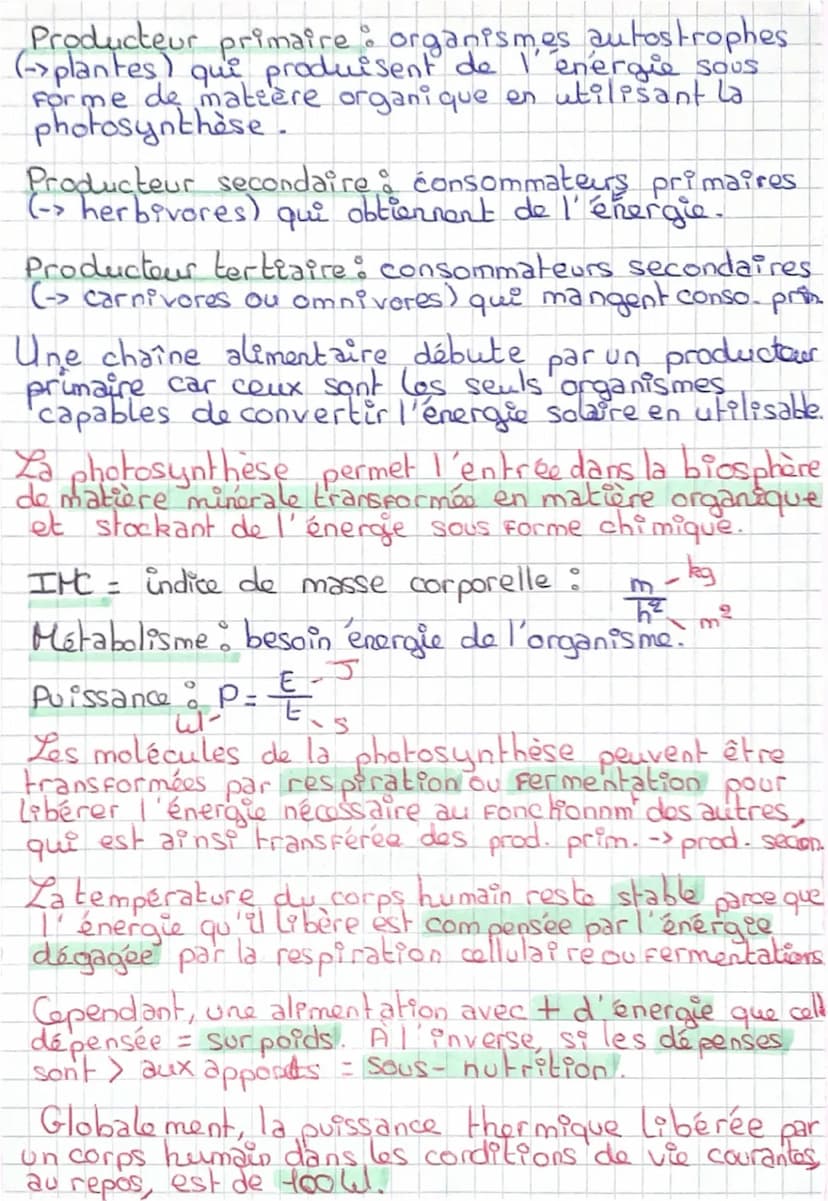 Producteur primaire : organismes autostrophes
(-> plantes) qui produisent de l'énergie sous
forme de matière organique en utilisant la
photosynthèse.
Producteur secondaire : consommateurs primaires
(-> herbivores) qui obtiennent de l'énergie.
Producteur tertiaire : consommateurs secondaires
(-> carnivores ou omnivores) qui mangent conso. prim
Une chaîne alimentaire débute par un producteur
primaire car ceux sont les seuls organismes
capables de convertir l'énergie solaire en utilisable.
La photosynthèse permet l'entrée dans la biosphère
de matière minérale transformée en matière organique
et stockant de l'énergie sous forme chimique.
IMC = indice de masse corporelle : m/h² - kg \ m²
Métabolisme : besoin énergie de l'organisme.
Puissance : P = E/t - J \ s
W -
Les molécules de la photosynthèse peuvent être
transformées par respiration ou fermentation pour
libérer l'énergie nécessaire au fonctionnmt des autres,
qui est ainsi transférée des prod. prim. -> prod. secon.
La température du corps humain reste stable parce que
l'énergie qu'il libère est compensée par l'énergie
dégagée par la respiration cellulaire ou fermentations
Cependant, une alimentation avec + d'énergie que cell
dépensée = surpoids. À l'inverse, si les dépenses
sont > aux apports = sous-nutrition.
Globalement, la puissance thermique libérée par
un corps humain dans les conditions de vie courantes,
au repos, est de 100W.